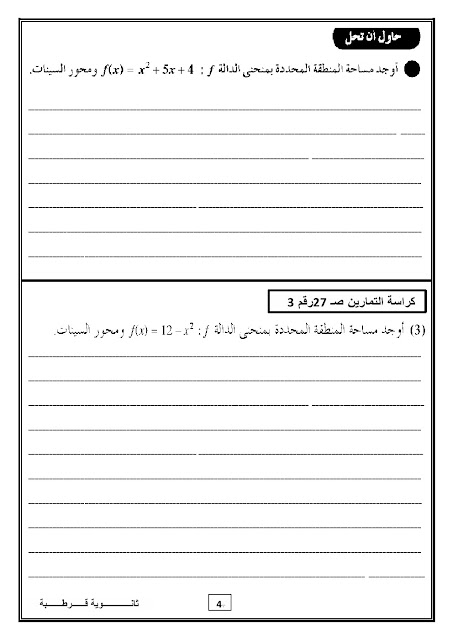 حاول أن تحل
أوجد مساحة المنطقة المحددة بمنحنى الدالة f : f(x) = x² + 5x + 4 ومحور السينات.
كراسة التمارين صـ 27رقم 3
(3) أوجد مساحة المنطقة المحددة بمنحنى الدالة f : f(x) = 12 − x² ومحور السينات.
ثانـــــوية قـــرطـــبة
4